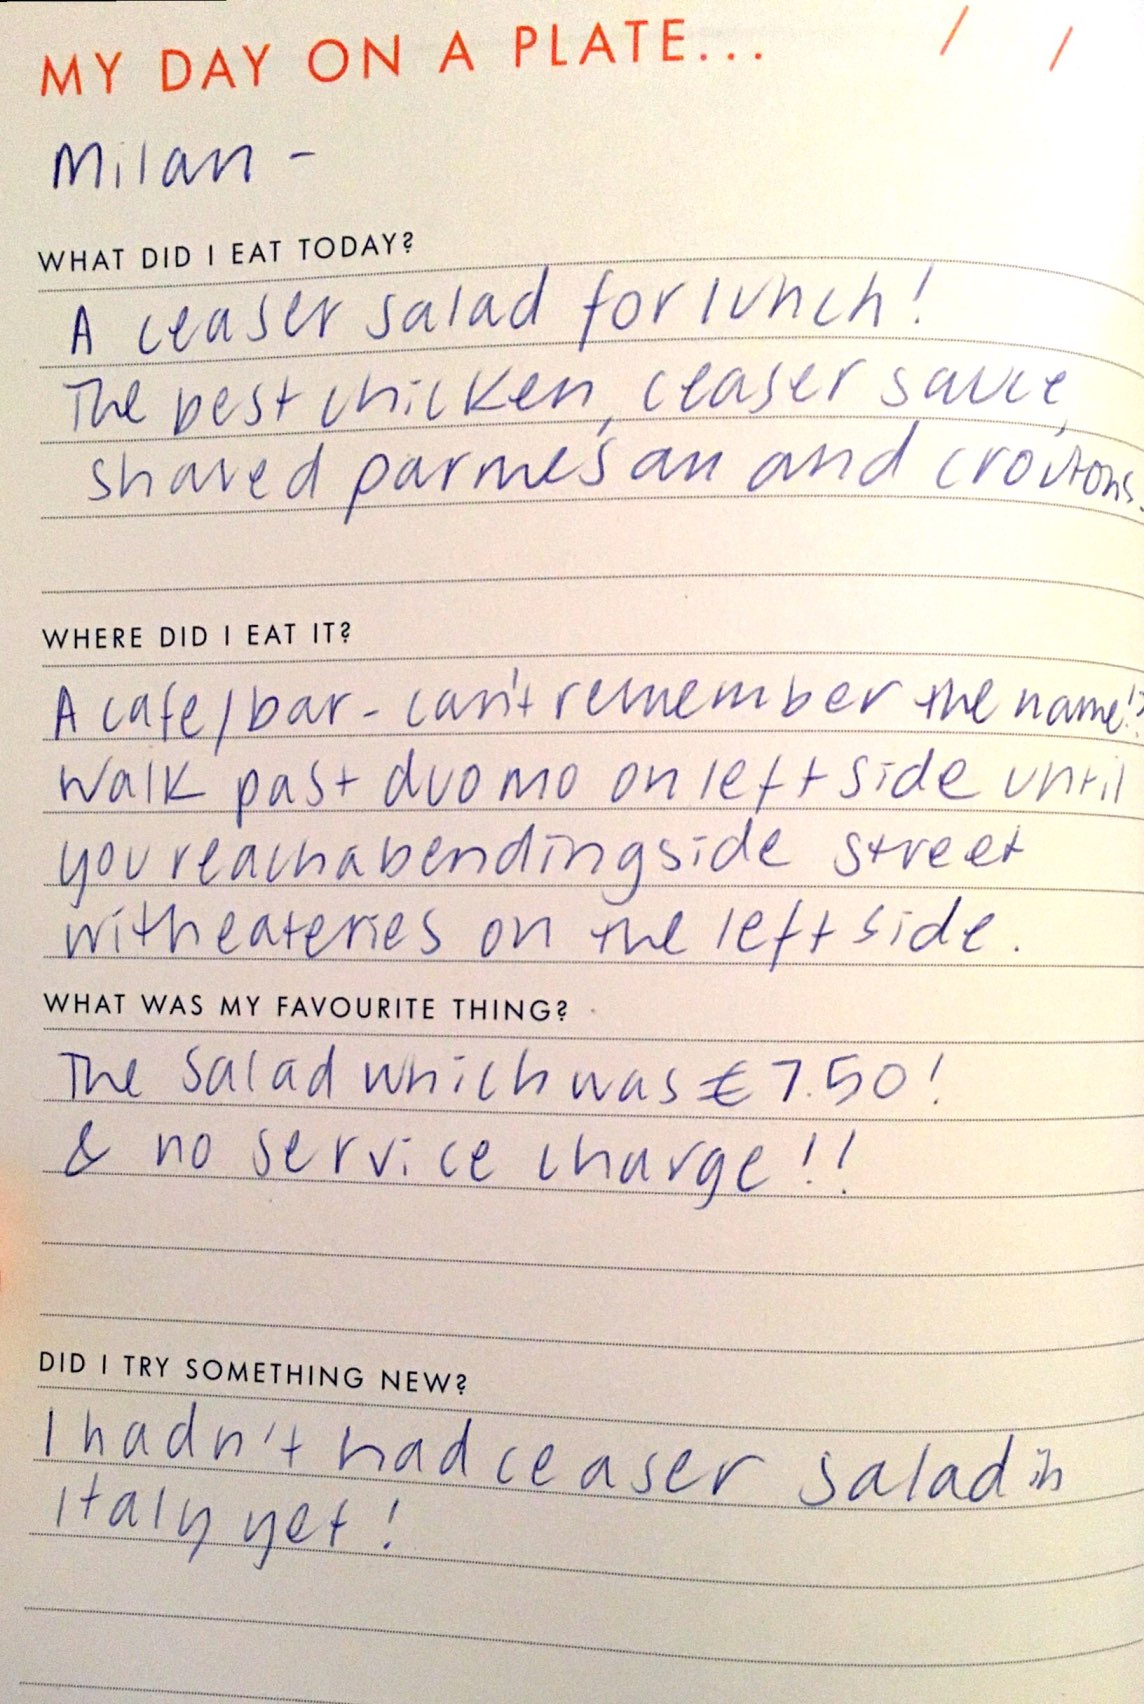 MY DAY ON A PLATE... / /
Milan -
WHAT DID I EAT TODAY?
A ceaser salad for lunch!
The best chicken, ceaser sauce,
shaved parmesan and croutons.
WHERE DID I EAT IT?
A cafe/bar - can't remember the name!?
Walk past duomo on left side until
you reach a bending side street
with eateries on the left side.
WHAT WAS MY FAVOURITE THING?
The salad which was €7.50!
& no service charge!!
DID I TRY SOMETHING NEW?
I hadn't had ceaser salad in
Italy yet!